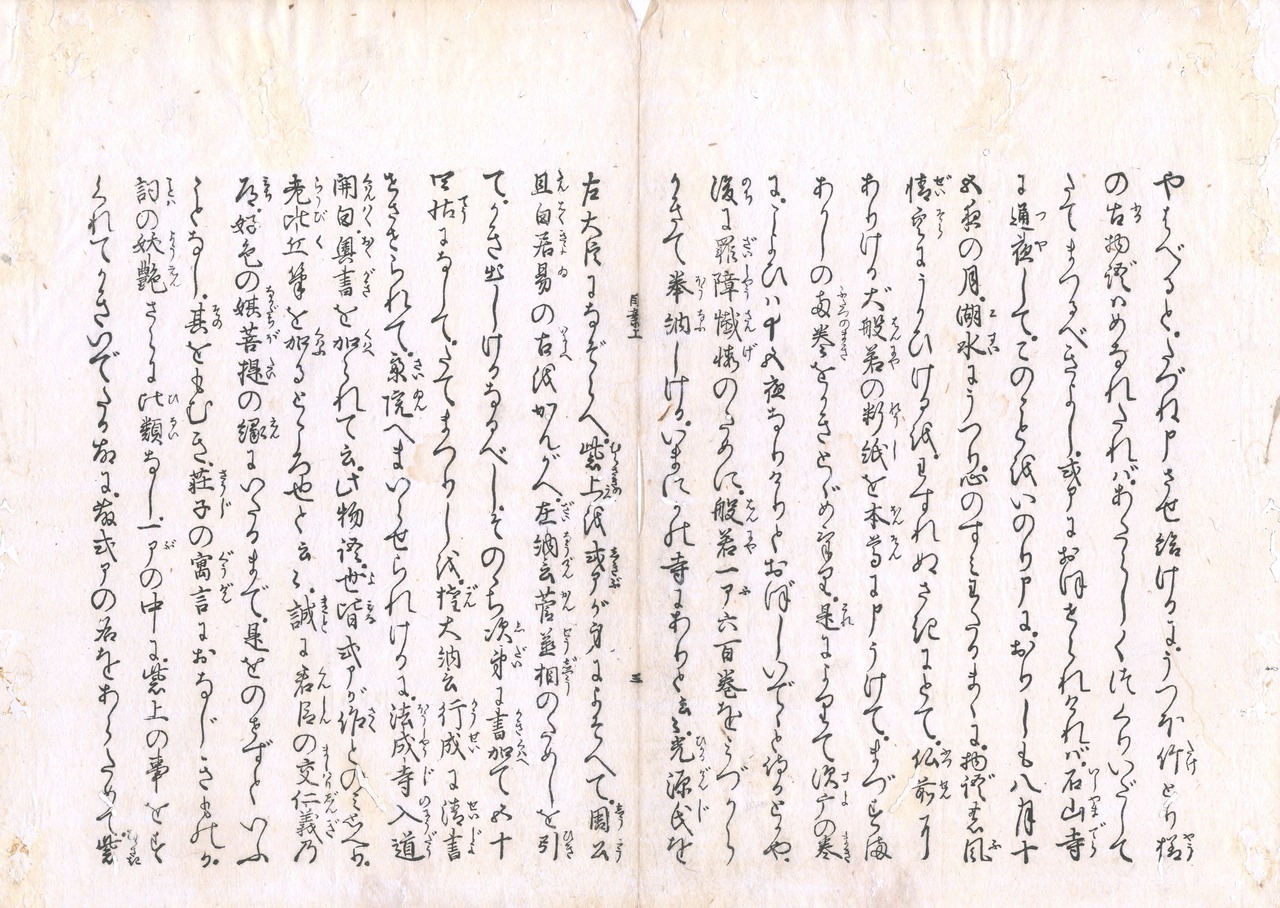 やはべると。たづね申させ給けるに。うつぼ竹とり様
の古物語はめなれたれば。あたらしくつくりいだして
たてまつるべきよし。式ア(部)におほせられければ。石山寺
に通夜して。このことをいのり申に。おりしも八月十
五夜の月。湖水にうつり。心のすみわたるまゝに。物語の風
情空にうかひけるを。わすれぬさきにとて。仏前に
ありける大般若の料紙を本尊に申うけて。まづすま
あかしの両巻をかきとゞめけり。是によりて須广の巻
に。こよひは十五夜なりけりとおぼしいでゝと侍るとかや。
後に罪障懺悔のために。般若一ア六百巻をみづから
かきて奉納しける。いまにかの寺にありと云々。光源氏を
目案上
三
左大臣になぞらへ。紫上を式アが身によそへて。周公
旦白居易の古をかんがへ。在納言菅丞相のためしを引
て。かき出しけるなるべし。そのゝち次第に書加て五十
四帖になして。たてまつりしを。権大納言行成に清書
させられて。斎院へまいらせられけるに。法成寺入道
関白奥書を加へられて云。此物語。世皆式アが作とのみ思へり。
老比丘筆を加るところ也と云々。誠に君臣の交仁義乃
道。好色の媒菩提の縁にいたるまで。是をのせずといふ
ことなし。其をもむき。荘子の寓言におなじきものか。
詞の妖艶さらに比類なし。一アの中に。紫上の事をす
くれてかきいでたる故に。藤式アの名をあらためて。紫